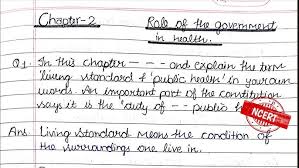 Chapter-2
Role of the government
in health.
Q1. In this chapter - - - and explain the term
'living standard & 'public health' in your own
words. An important part of the constitution
says it is the 'duty of -- public
Ans. Living standard means the condition of
the surroundings one live in.
NCERT